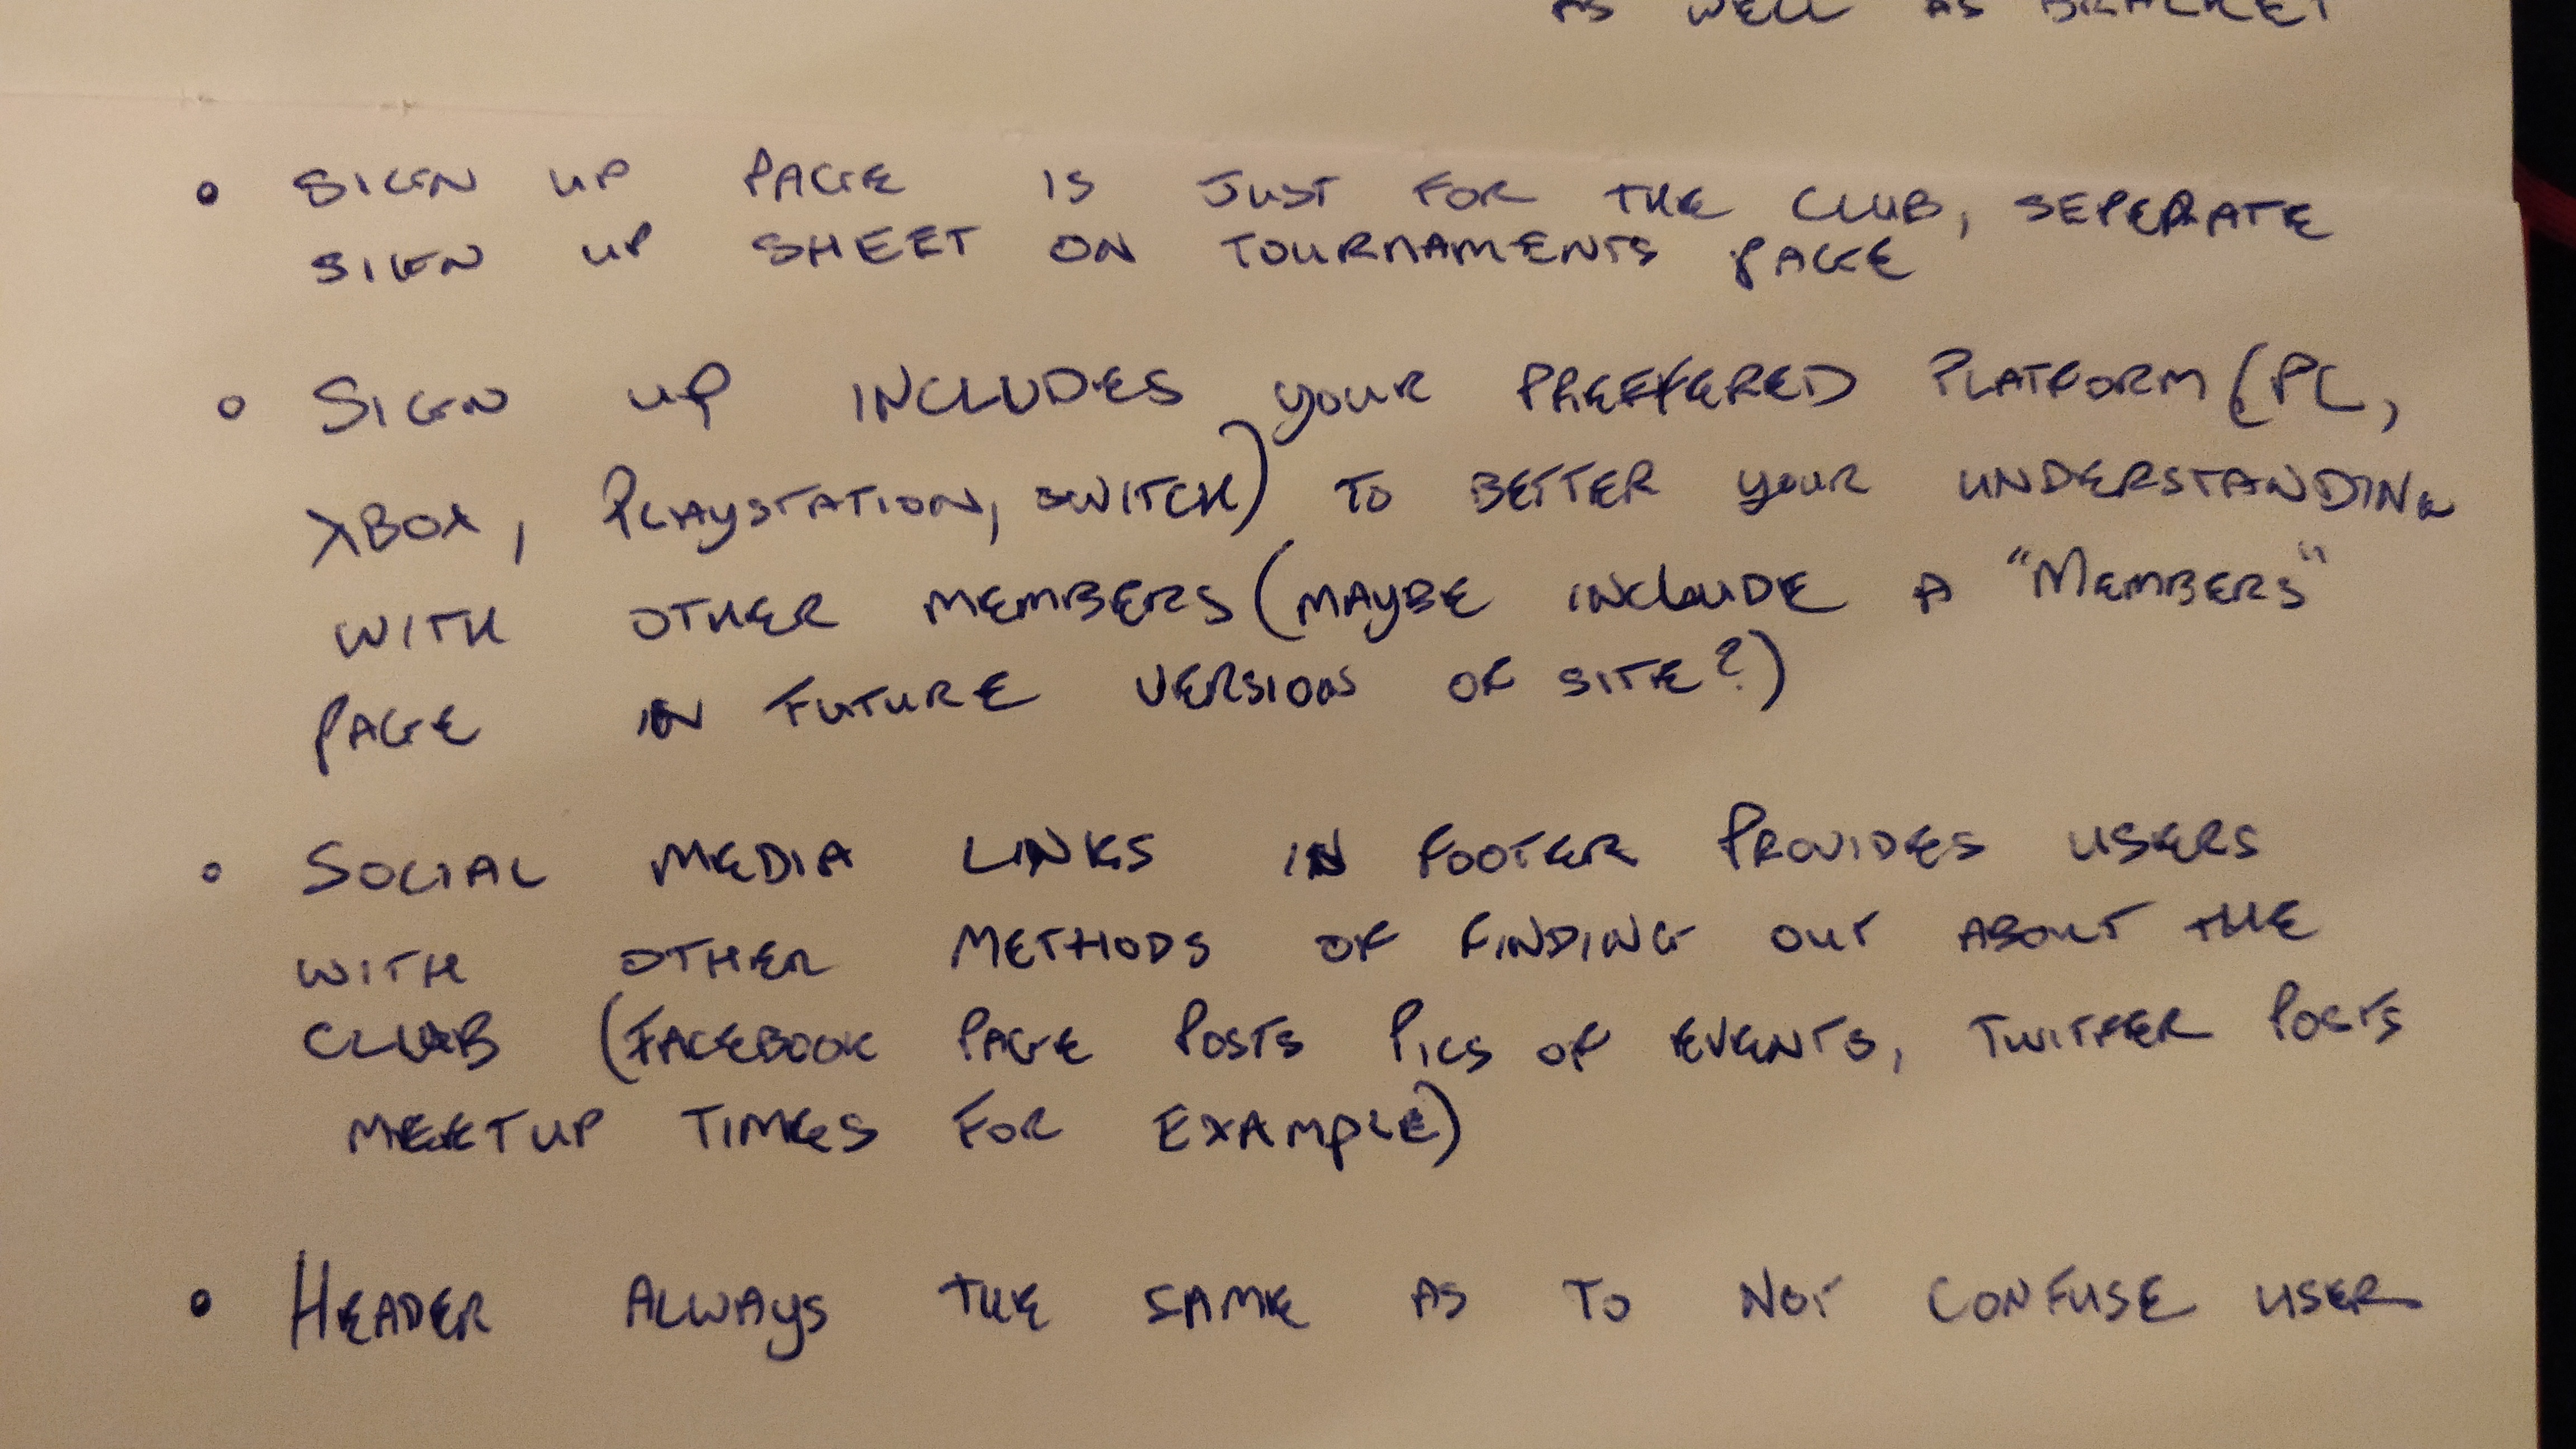 AS WELL AS BRACKET
• SIGN UP PAGE IS JUST FOR THE CLUB, SEPERATE
SIGN UP SHEET ON TOURNAMENTS PAGE
• SIGN UP INCLUDES YOUR PREFFERED PLATFORM (PC,
XBOX, PLAYSTATION, SWITCH) TO BETTER YOUR UNDERSTANDING
WITH OTHER MEMBERS (MAYBE INCLUDE A "MEMBERS"
PAGE IN FUTURE VERSION OF SITE?)
• SOCIAL MEDIA LINKS IN FOOTER PROVIDES USERS
WITH OTHER METHODS OF FINDING OUT ABOUT THE
CLUB (FACEBOOK PAGE POSTS PICS OF EVENTS, TWITTER POSTS
MEETUP TIMES FOR EXAMPLE)
• HEADER ALWAYS THE SAME AS TO NOT CONFUSE USER